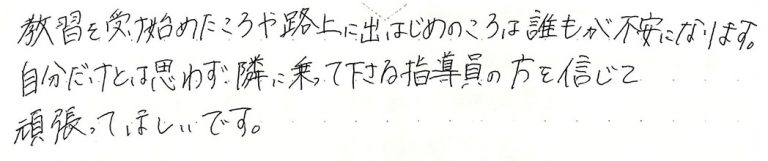 教習を受け始めたころや路上に出はじめのころは誰もが不安になります。
自分だけとは思わず隣に乗って下さる指導員の方を信じて
頑張ってほしいです。